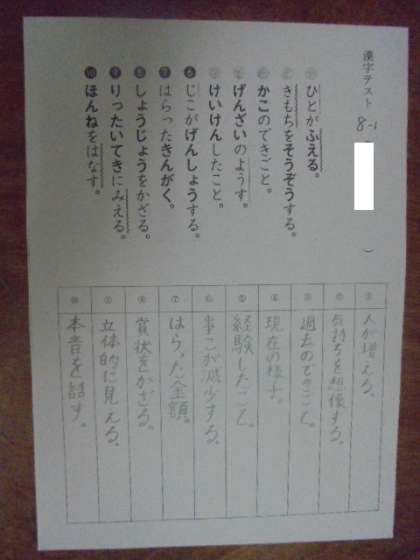 漢字テスト 8-1
① ひとがふえる。
② きもちをそうぞうする。
③ かこのできごと。
④ げんざいのようす。
⑤ けいけんしたこと。
⑥ じこがげんしょうする。
⑦ はらったきんがく。
⑧ しょうじょうをかざる。
⑨ りったいてきにみえる。
⑩ ほんねをはなす。
① 人が増える。
② 気持ちを想像する。
③ 過去のできごと。
④ 現在の様子。
⑤ 経験したこと。
⑥ 事こが減少する。
⑦ はらった金額。
⑧ 賞状をかざる。
⑨ 立体的に見える。
⑩ 本音を話す。